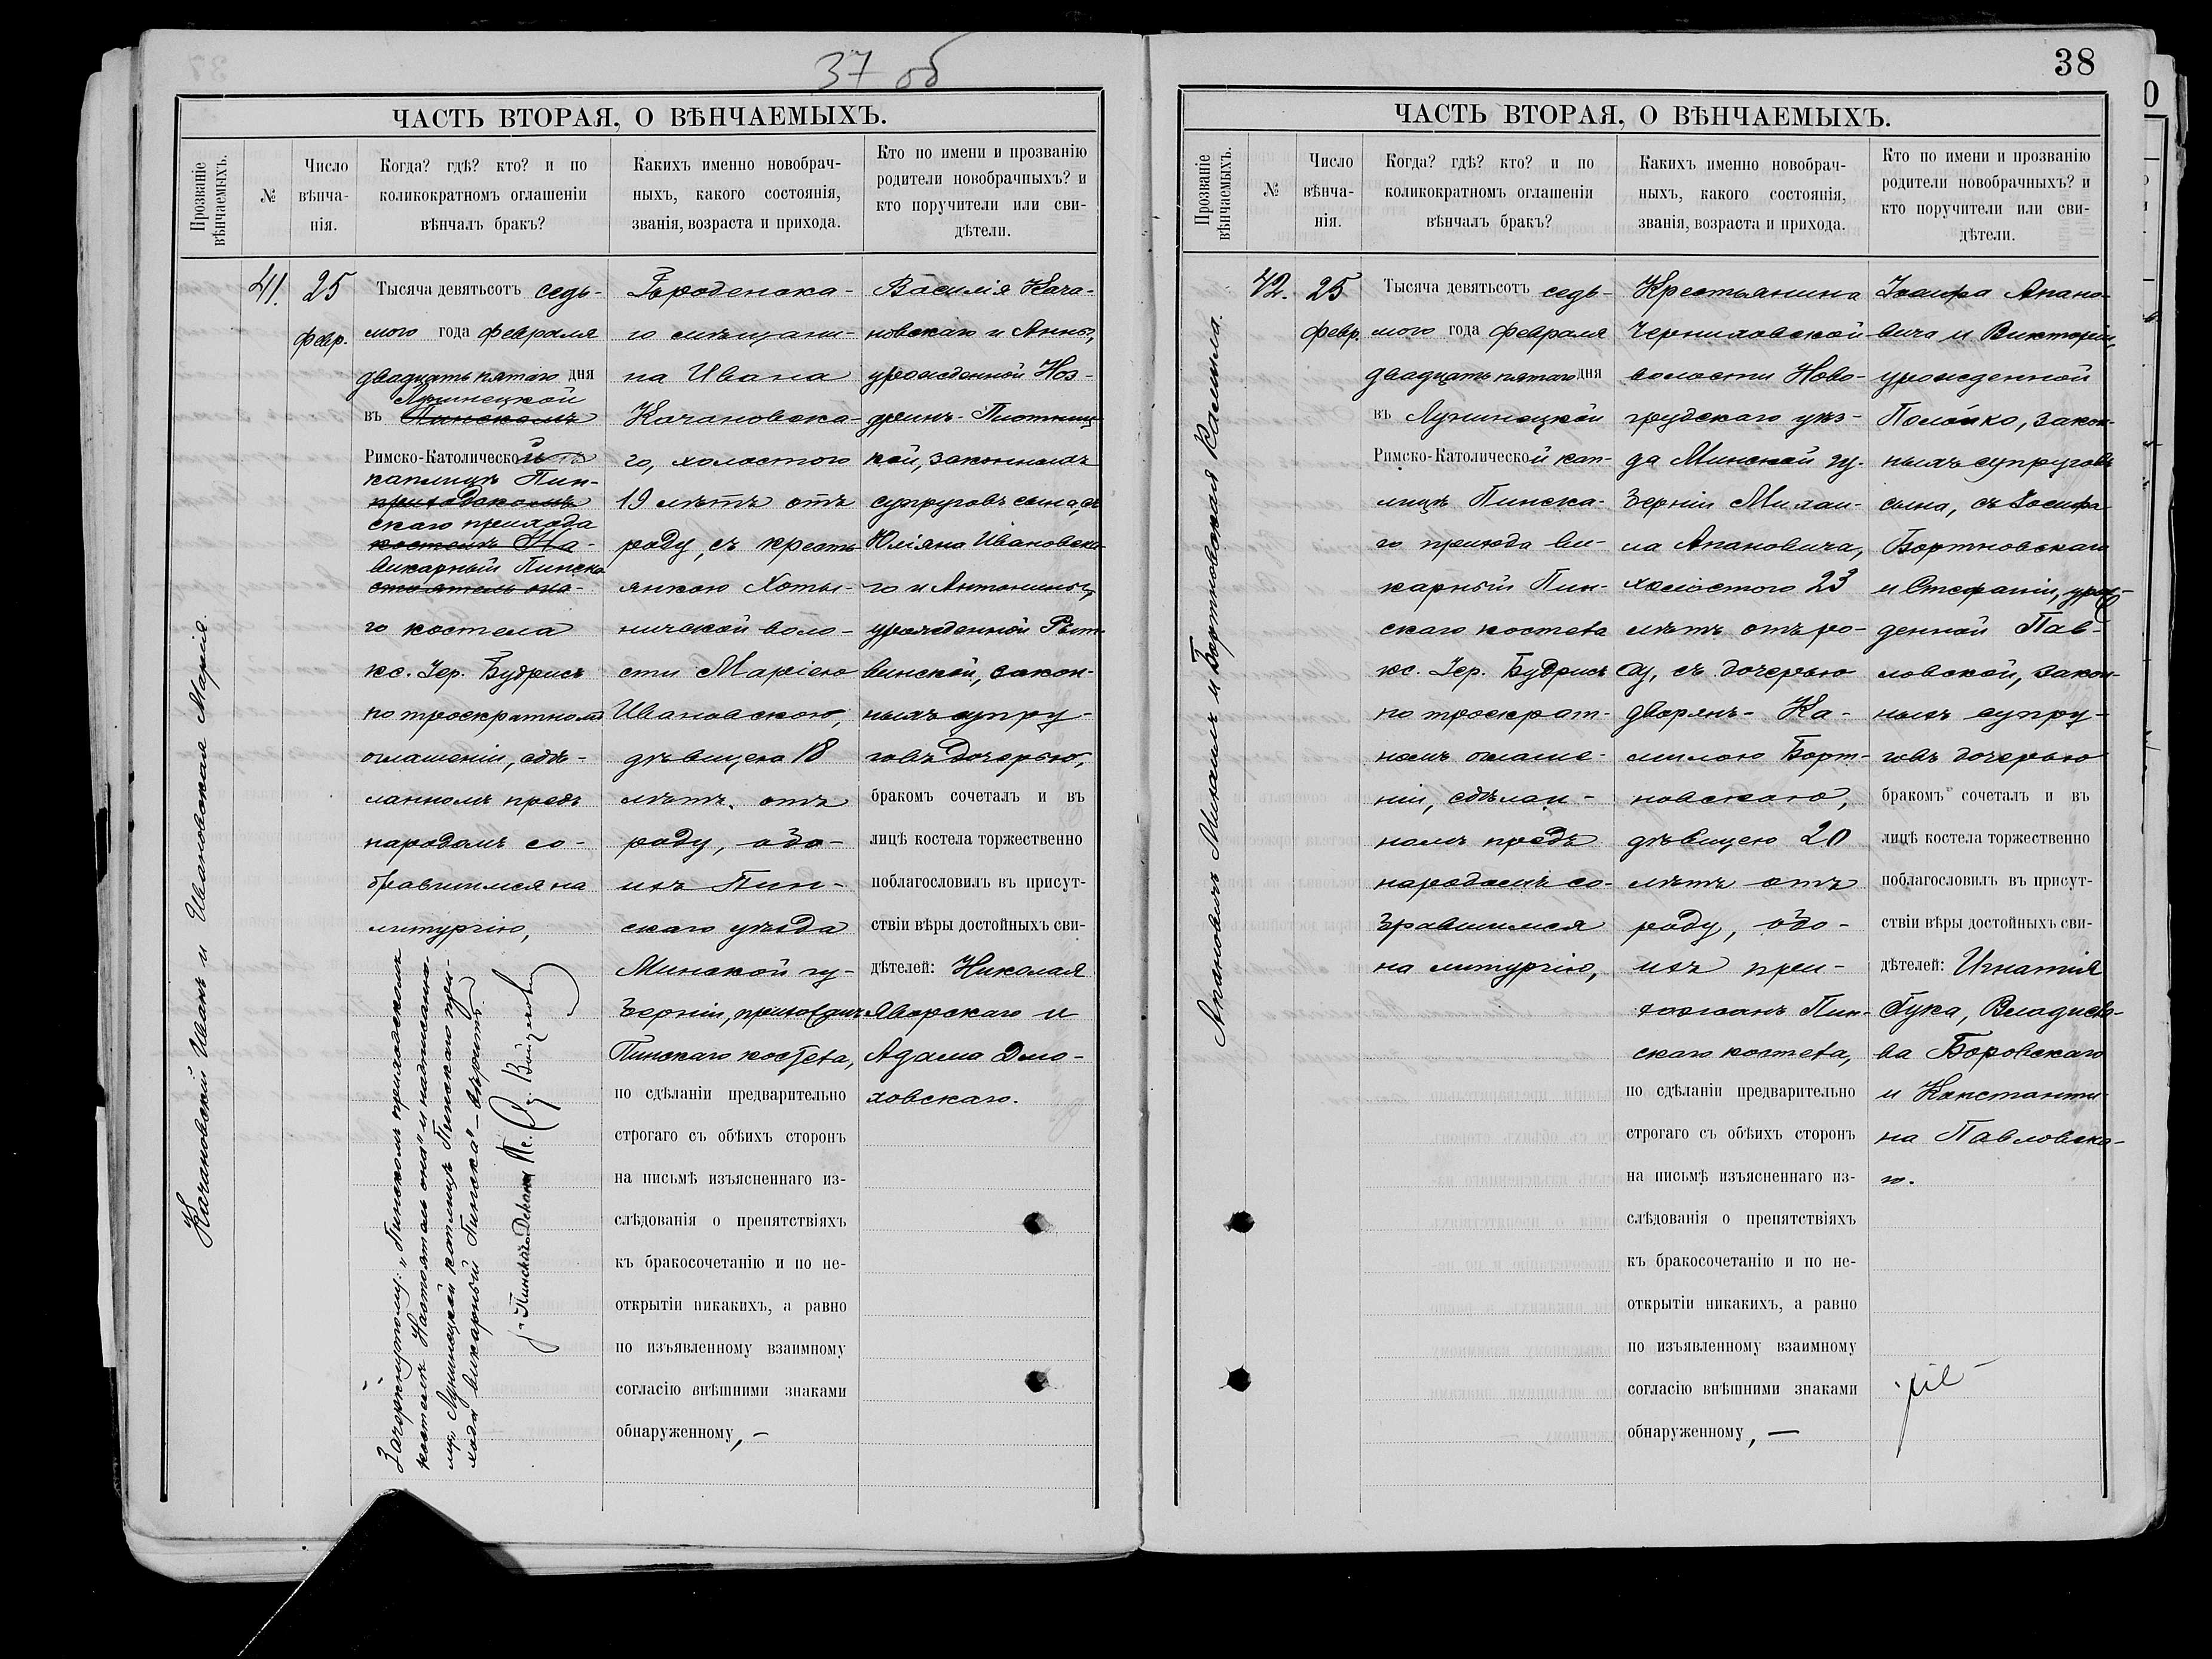 37 об
ЧАСТЬ ВТОРАЯ, О ВѢНЧАЕМЫХЪ.
Прозваніе
вѣнчаемыхъ.
№
Число
вѣнча-
нія.
Когда? гдѣ? кто? и по
коликократномъ оглашеніи
вѣнчалъ бракъ?
Какихъ именно новобрач-
ныхъ, какого состоянія,
званія, возраста и прихода.
Кто по имени и прозванію
родители новобрачныхъ? и
кто поручители или сви-
дѣтели.
Качановскій Иванъ и Ивановская Марія.
41.
25
февр.
Тысяча девятьсотъ седь-
мого года февраля
двадцать пятаго дня
Лунинецкой
въ Пинскомъ
Римско-Католической
каплицѣ Пин-
приходскомъ
скаго прихода
костелѣ На-
викарный Пинска-
стоятель она-
го костела
кс. Іер. Будрисъ
по троекратномъ
оглашеніи, сдѣ-
ланномъ предъ
народомъ со-
бравшимся на
литургію,
Зачеркнутому: „Пинскомъ приходскомъ
костелѣ Настоятель она" и надписанно-
му „Лунинецкой каплицѣ Пинскаго при-
хода викарный Пинска" – вѣрить.
Пинскій Деканъ Кс.
Городенска-
го мѣщани-
на Ивана
Качановска-
го, холостого
19 лѣтъ отъ
роду, съ кресть-
янкою Хоты-
ничской воло-
сти Маріею
Ивановскою,
дѣвицею 18
лѣтъ отъ
роду, обо-
ихъ Пин-
скаго уѣзда
Минской гу-
берніи, прихожанъ
Пинскаго костела,
по сдѣланіи предварительно
строгаго съ обѣихъ сторонъ
на письмѣ изъясненнаго из-
слѣдованія о препятствіяхъ
къ бракосочетанію и по не-
открытіи никакихъ, а равно
по изъявленному взаимному
согласію внѣшними знаками
обнаруженному, –
Василія Кача-
новскаго и Анны,
урожденной Ноз-
дринъ-Плотниц-
кой, законныхъ
супруговъ сына, съ
Юліана Ивановска-
го и Антонины,
урожденной
винской, закон-
ныхъ супру-
говъ дочерью,
бракомъ сочеталъ и въ
лицѣ костела торжественно
поблагословилъ въ присут-
ствіи вѣры достойныхъ сви-
дѣтелей: Николая
Яворскаго и
Адама Дмо-
ховскаго.
38
ЧАСТЬ ВТОРАЯ, О ВѢНЧАЕМЫХЪ.
Прозваніе
вѣнчаемыхъ.
№
Число
вѣнча-
нія.
Когда? гдѣ? кто? и по
коликократномъ оглашеніи
вѣнчалъ бракъ?
Какихъ именно новобрач-
ныхъ, какого состоянія,
званія, возраста и прихода.
Кто по имени и прозванію
родители новобрачныхъ? и
кто поручители или сви-
дѣтели.
Апановичъ Михаилъ и Бортновская Камилла.
42.
25
февр.
Тысяча девятьсотъ седь-
мого года февраля
двадцать пятаго дня
въ Лунинецкой
Римско-Католической кап-
лицѣ Пинска-
го прихода ви-
карный Пин-
скаго костела
кс. Іер. Будрисъ
по троекрат-
номъ оглаше-
ніи, сдѣлан-
номъ предъ
народомъ со-
бравшимся
на литургію,
Крестьянина
Черниховской
волости Ново-
грудскаго уѣз-
да Минской гу-
берніи Михаи-
ла Апановича,
холостого 23
лѣтъ отъ ро-
ду, съ дочерью
дворянъ Ка-
милою Борт-
новскою,
дѣвицею 20
лѣтъ отъ
роду, обо-
ихъ при-
хожанъ Пин-
скаго костела,
по сдѣланіи предварительно
строгаго съ обѣихъ сторонъ
на письмѣ изъясненнаго из-
слѣдованія о препятствіяхъ
къ бракосочетанію и по не-
открытіи никакихъ, а равно
по изъявленному взаимному
согласію внѣшними знаками
обнаруженному, –
Іосифа Апано-
вича и Викторіи,
урожденной
Полойко, закон-
ныхъ супруговъ
сына, съ Іосифа
Бортновскаго
и Стефаніи, урож-
денной Пав-
ловской, закон-
ныхъ супру-
говъ дочерью
бракомъ сочеталъ и въ
лицѣ костела торжественно
поблагословилъ въ присут-
ствіи вѣры достойныхъ сви-
дѣтелей: Игнатія
Гука, Владисла-
ва Боровскаго
и Константи-
на Павловска-
го.